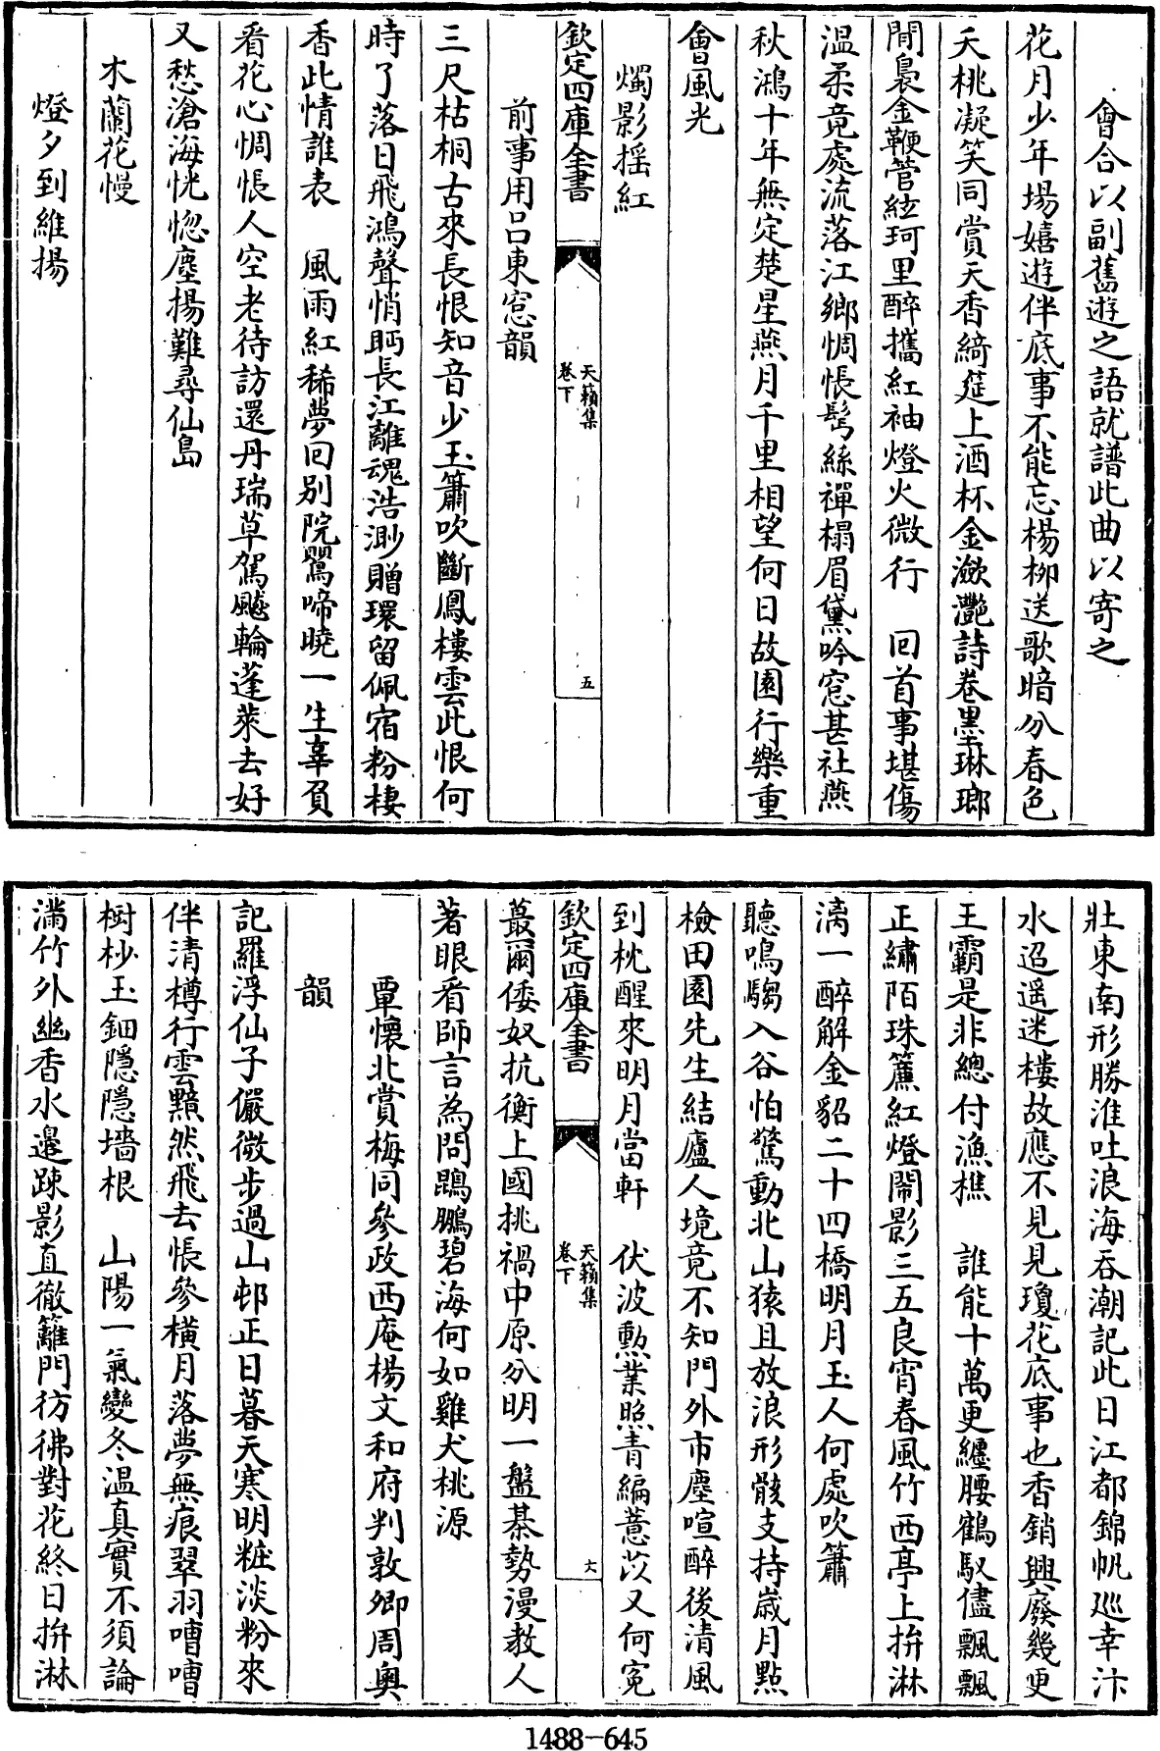 會合以副舊遊之語就譜此曲以寄之
花月少年場嬉遊伴底事不能忘楊柳送歌暗分春色
夭桃凝笑同賞天香綺筵上酒杯金瀲灧詩卷墨琳瑯
閒裊金鞭管絃珂里醉攜紅袖燈火微行　回首事堪傷
溫柔竟處流落江鄉惆悵鬂絲禪榻眉黛吟窓甚社燕
秋鴻十年無定楚星燕月千里相望何日故園行樂重
會風光
燭影揺紅
欽定四庫全書
天籟集
卷下
五
前事用吕東窓韻
三尺枯桐古來長恨知音少玉簫吹斷鳳樓雲此恨何
時了落日飛鴻聲悄眄長江離魂浩渺贈環留佩宿粉棲
香此情誰表　風雨紅稀夢回别院鶯啼曉一生辜負
看花心惆悵人空老待訪還丹瑞草駕飇輪蓬萊去好
又愁滄海恍惚塵揚難尋仙島
木蘭花慢
燈夕到維揚
壯東南形勝淮吐浪海吞潮記此日江都錦帆廵幸汴
水迢遥迷樓故應不見見瓊花底事也香銷興廢幾更
王霸是非總付漁樵　誰能十萬更纏腰鶴馭儘飄飄
正繡陌珠簾紅燈閙影三五良宵春風竹西亭上拚淋
漓一醉解金貂二十四橋明月玉人何處吹簫
聽鳴騶入谷怕驚動北山猿且放浪形骸支持歳月點
檢田園先生結廬人境竟不知門外市塵喧醉後清風
到枕醒來明月當軒　伏波勲業照青編薏苡又何寃
欽定四庫全書
天籟集
卷下
六
蕞爾倭奴抗衡上國挑禍中原分明一盤棊勢漫教人
著眼看師言為問鵾鵬碧海何如雞犬桃源
覃懷北賞梅同參政西庵楊文和府判敦卿周奥
韻
記羅浮仙子儼微步過山邨正日暮天寒明粧淡粉來
伴清樽行雲黯然飛去悵參橫月落夢無痕翠羽嘈嘈
樹杪玉鈿隱隱墻根　山陽一氣變冬温真實不須論
滿竹外幽香水邉踈影直徹籬門彷彿對花終日拚淋
1488-645